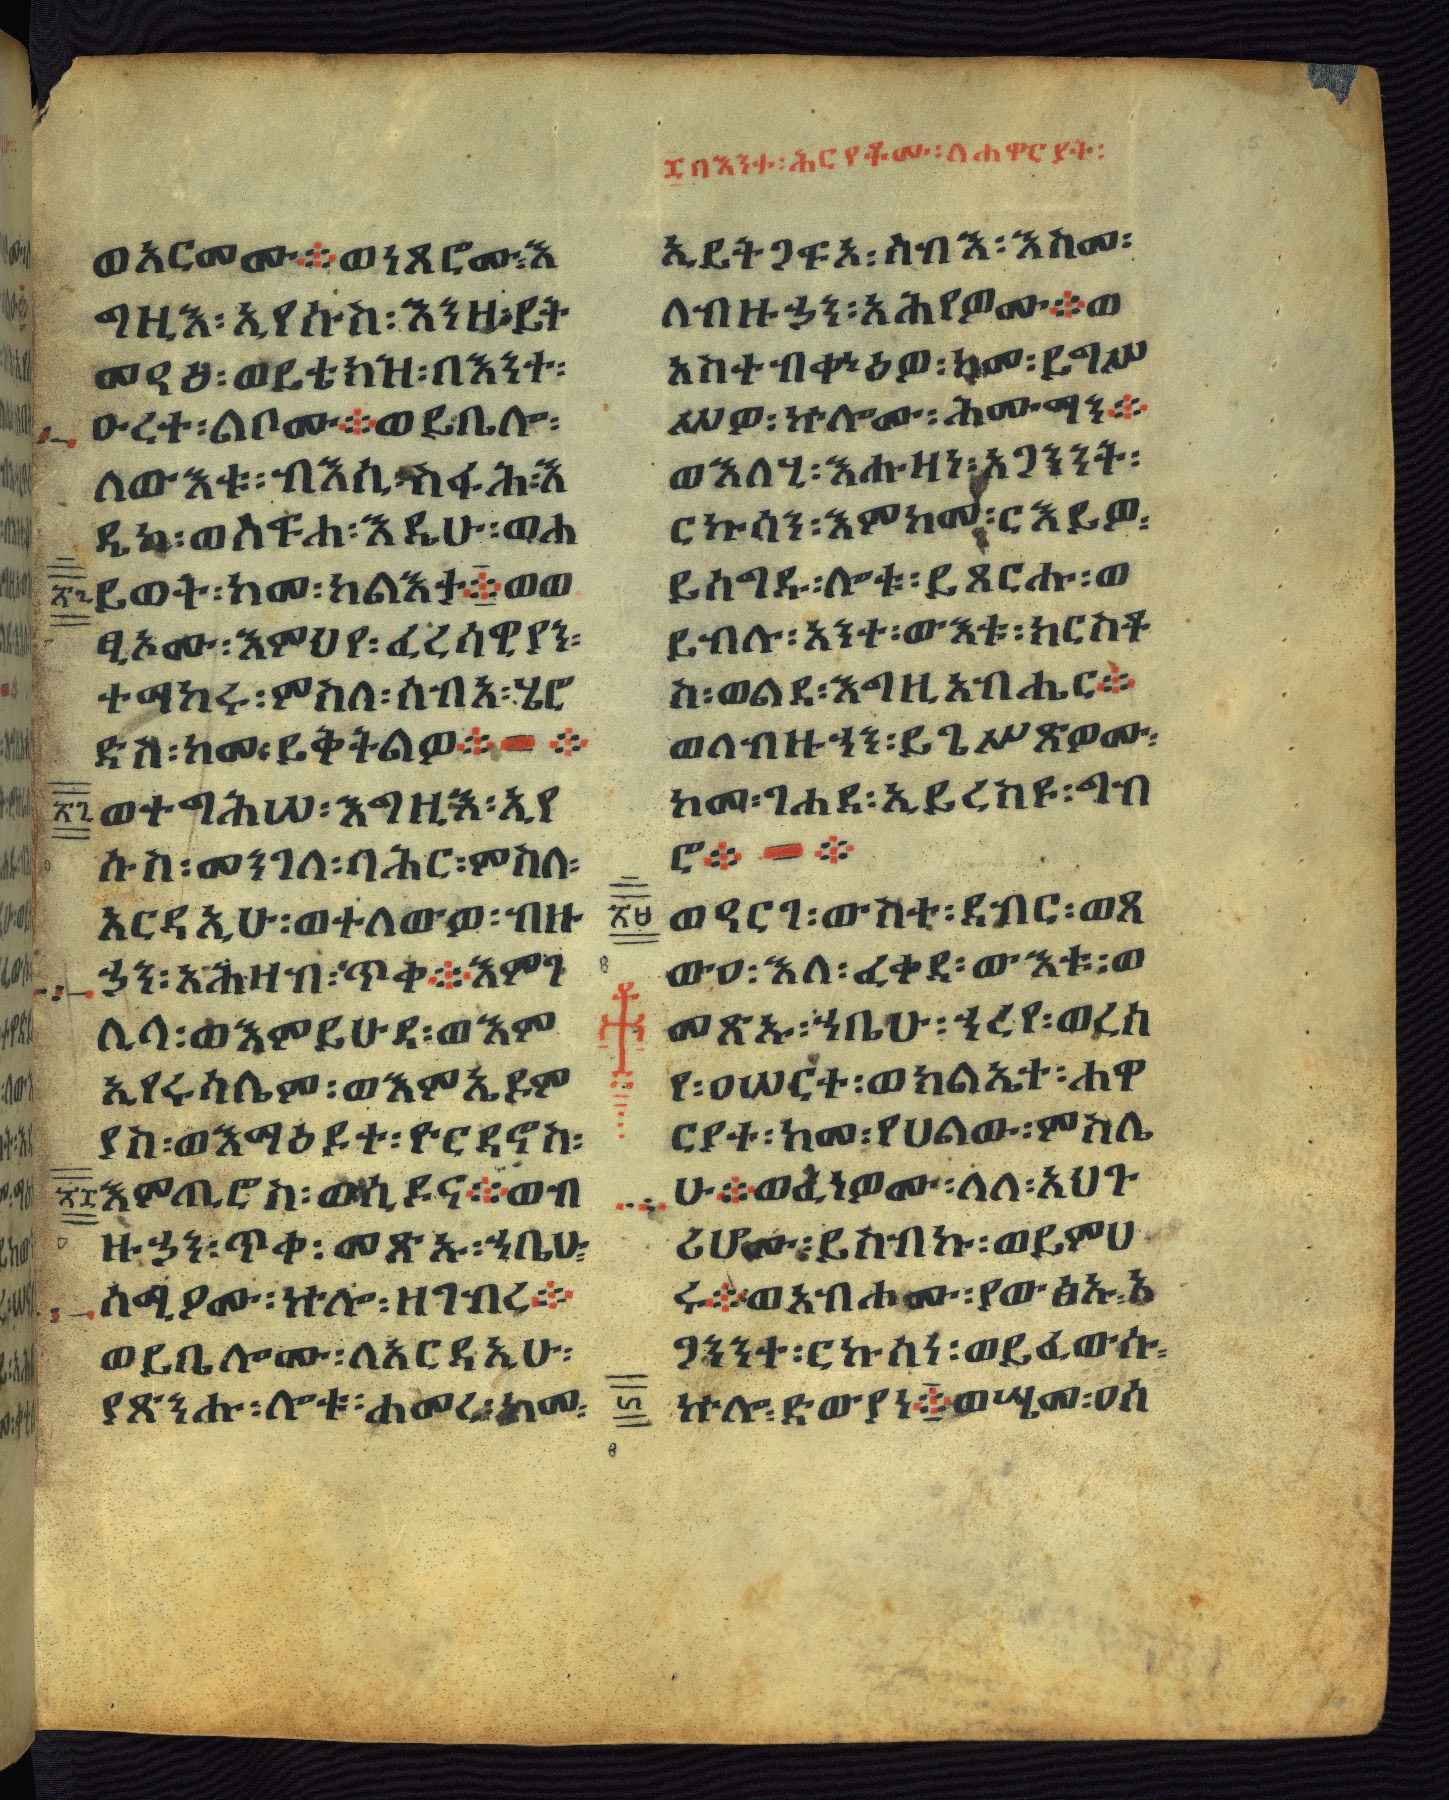 ፲በእንተ፡ሕርየቶሙ፡ለሐዋርያት፡
ወአርመሙ፨ወነጸሮሙ፡እ
ግዚእ፡ኢየሱስ፡እንዘ፡ይት
መዓፅ፡ወይቴክዝ፡በእንተ፡
ዑረተ፡ልቦሙ፨ወይቤሎ፡
ለውእቱ፡ብእሲ፡ስፋሕ፡እ
ዴከ፡ወሰፍሐ፡እዴሁ፡ወሐ
ይወት፡ከመ፡ካልእታ፨ወወ
ፂኦሙ፡እምህየ፡ፈረሳዊያን፡
ተማከሩ፡ምስለ፡ሰብአ፡ሄሮ
ድስ፡ከመ፡ይቅትልዎ፨ ፨
ወተግሕሠ፡እግዚእ፡ኢየ
ሱስ፡መንገለ፡ባሕር፡ምስለ፡
አርዳኢሁ፡ወተለውዎ፡ብዙ
ኃን፡አሕዛብ፡ጥቀ፨እምገ
ሊላ፡ወእምይሁዳ፡ወእም
ኢየሩሳሌም፡ወእምኤዶም
ያስ፡ወእማዕዶተ፡ዮርዳኖስ፡
እምጢሮስ፡ወሲዶና፨ወብ
ዙኃን፡ጥቀ፡መጽኡ፡ኀቤሁ፡
ሰሚዖሙ፡ኵሎ፡ዘገብረ፨
ወይቤሎሙ፡ለአርዳኢሁ፡
ያጽንሑ፡ሎቱ፡ሐመረ፡ከመ፡
ኢይትጋፍአ፡ሰብእ፡እስመ፡
ለብዙኃን፡አሕየዎሙ፨ወ
አስተብቀኍዕዎ፡ከመ፡ይግሥ
ሥዎ፡ኵሎሙ፡ሕሙማን፨
ወእለሂ፡እሑዛነ፡አጋንንት፡
ርኩሳን፡እምከመ፡ርእይዎ፡
ይሰግዱ፡ሎቱ፡ይጸርሑ፡ወ
ይብሉ፡አንተ፡ውእቱ፡ክርስቶ
ስ፡ወልደ፡እግዚአብሔር፨
ወለብዙኀን፡ይጌሥጾሙ፡
ከመ፡ገሐደ፡ኢይረስዩ፡ግብ
ሮ፨ ፨
ወዓርገ፡ውስተ፡ደብር፡ወጸ
ውዐ፡እለ፡ፈቀደ፡ውእቱ፡ወ
መጽኡ፡ኀቤሁ፡ኀረየ፡ወረሰ
የ፡ዐሠርተ፡ወክልኤተ፡ሐዋ
ርያተ፡ከመ፡የሀልው፡ምስሌ
ሁ፨ወፈነዎሙ፡ለለ፡አህጉ
ሪሆሙ፡ይስብኩ፡ወይምህ
ሩ፨ወአብሖሙ፡ያውፅኡ፡አ
ጋንንተ፡ርኩሰነ፡ወይፈውሱ፡
ኵሎ፡ድውያነ፨ወሤመ፡ዐሰ